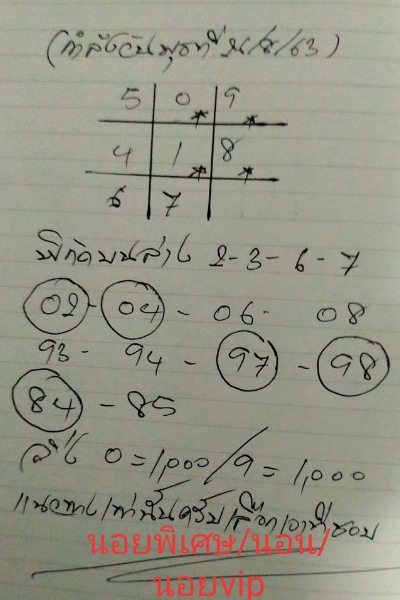 (กำลังวันพุธที่ /63)
5 0 9
4 1 8
6 7
พิกัดบนล่าง 2-3-6-7
02 - 04 - 06 - 08
93 - 94 - 97 - 98
84 - 85
ล่าง 0=1,000/9=1,000
แนวทางเท่านั้นครับเลือกเอาที่ชอบ
นอยพิเศษ/นอน/
นอยvip